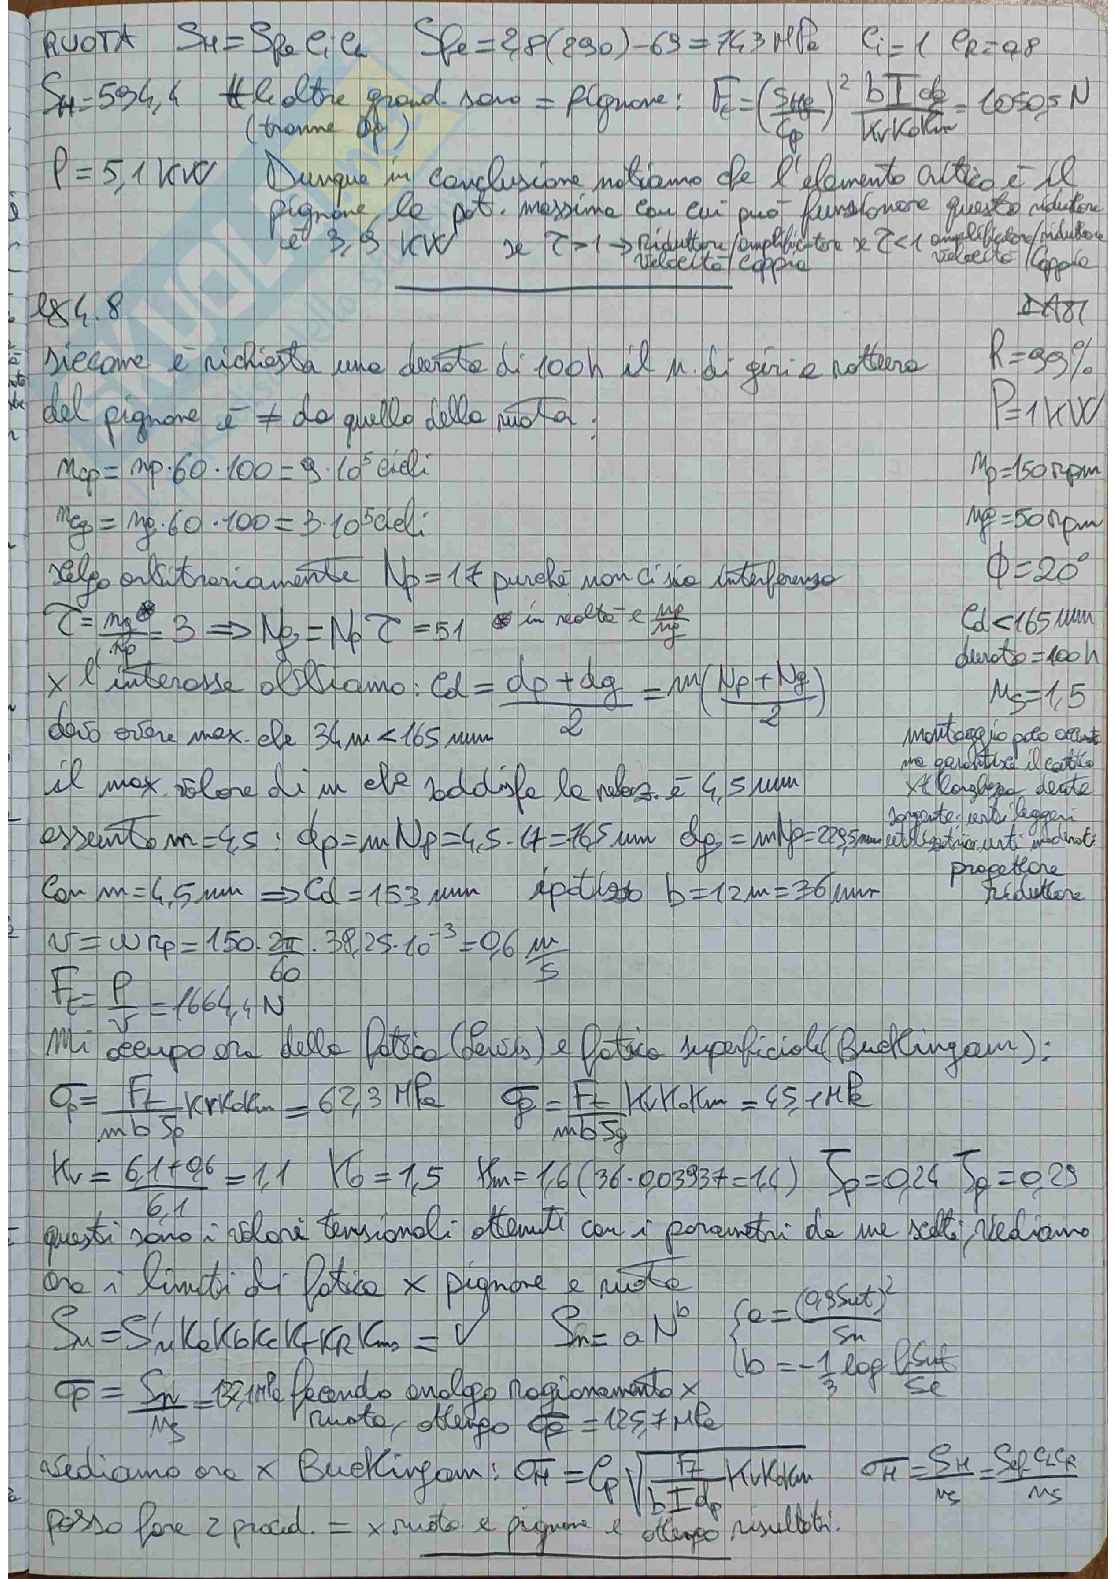 RUOTA SH = Sfe Ci CR Sfe = 2,8(290) - 69 = 743 MPa Ci = 1 CR = 0,8
SH = 594,4 # le altre grand. sono = pignone: Ft = (SHg/Cp)² bIdg/KvKoKm = 10505 N
(tranne dp)
P = 5,1 KW Dunque in conclusione notiamo che l'elemento critico è il
pignone, la pot. massima con cui può funzionare questo riduttore
è 3,9 KW se τ>1 → riduttore/amplificatore se τ<1 amplificatore/riduttore
velocità/coppia velocità/coppia
es 4.8 DATI
siccome è richiesta una durata di 100h il n. di giri a rottura R = 99%
del pignone è ≠ da quello della ruota: P = 1 KW
ncp = np·60·100 = 9·10⁵ cicli np = 150 rpm
ncg = ng·60·100 = 3·10⁵ cicli ng = 50 rpm
scelgo arbitrariamente Np = 17 purché non ci sia interferenza ϕ = 20°
τ = ng*/np = 3 ⇒ Ng = Np τ = 51 * in realtà è np/ng Cd < 165 mm
durata = 100h
x l'interasse abbiamo: Cd = dp+dg/2 = m(Np+Ng/2) Ns = 1,5
devo avere max. che 34m < 165 mm montaggio poco
ma garantisce il contatto
il max valore di m che soddisfa la relaz. è 4,5 mm x t lunghezza dente
sorgente urti leggeri
essento m = 4,5: dp = mNp = 4,5·17 = 76,5 mm dg = mNp = 229,5 mm
progettare
Con m = 4,5 mm ⇒ Cd = 153 mm ipotizzo b = 12m = 36 mm riduttore
v = ω rp = 150·2π/60 · 38,25·10⁻³ = 0,6 m/s
Ft = P/v = 1664,4 N
Mi occupo ora della fatica (Lewis) e fatica superficiale (Buckingam):
σp = Ft/mbJp KvKoKm = 62,3 MPa σg = Ft/mbJg KvKoKm = 45,1 MPa
Kv = 6,1+0,6/6,1 = 1,1 Ko = 1,5 Km = 1,6 (36·0,03937 = 1,4) Jp = 0,24 Jg = 0,29
questi sono i valori tensionali ottenuti con i parametri da me scelti, vediamo
ora i limiti di fatica x pignone e ruota
Sn = S'n Ka Kb Kc Kf KR Kms = √ Sn = a Nᵇ { a = (0,9Sut)²/Sn
b = -1/3 log 0,9Sut/Se
σp = Sn/Ns = 137,1 MPa facendo analogo ragionamento x
ruota, ottengo σg = 125,7 MPa
vediamo ora x Buckingam: σH = Cp √Ft/bIdp KvKoKm σH = SH/Ns = Sfe CiCR/Ns
posso fare 2 proced. = x ruota e pignone e ottengo risultati.